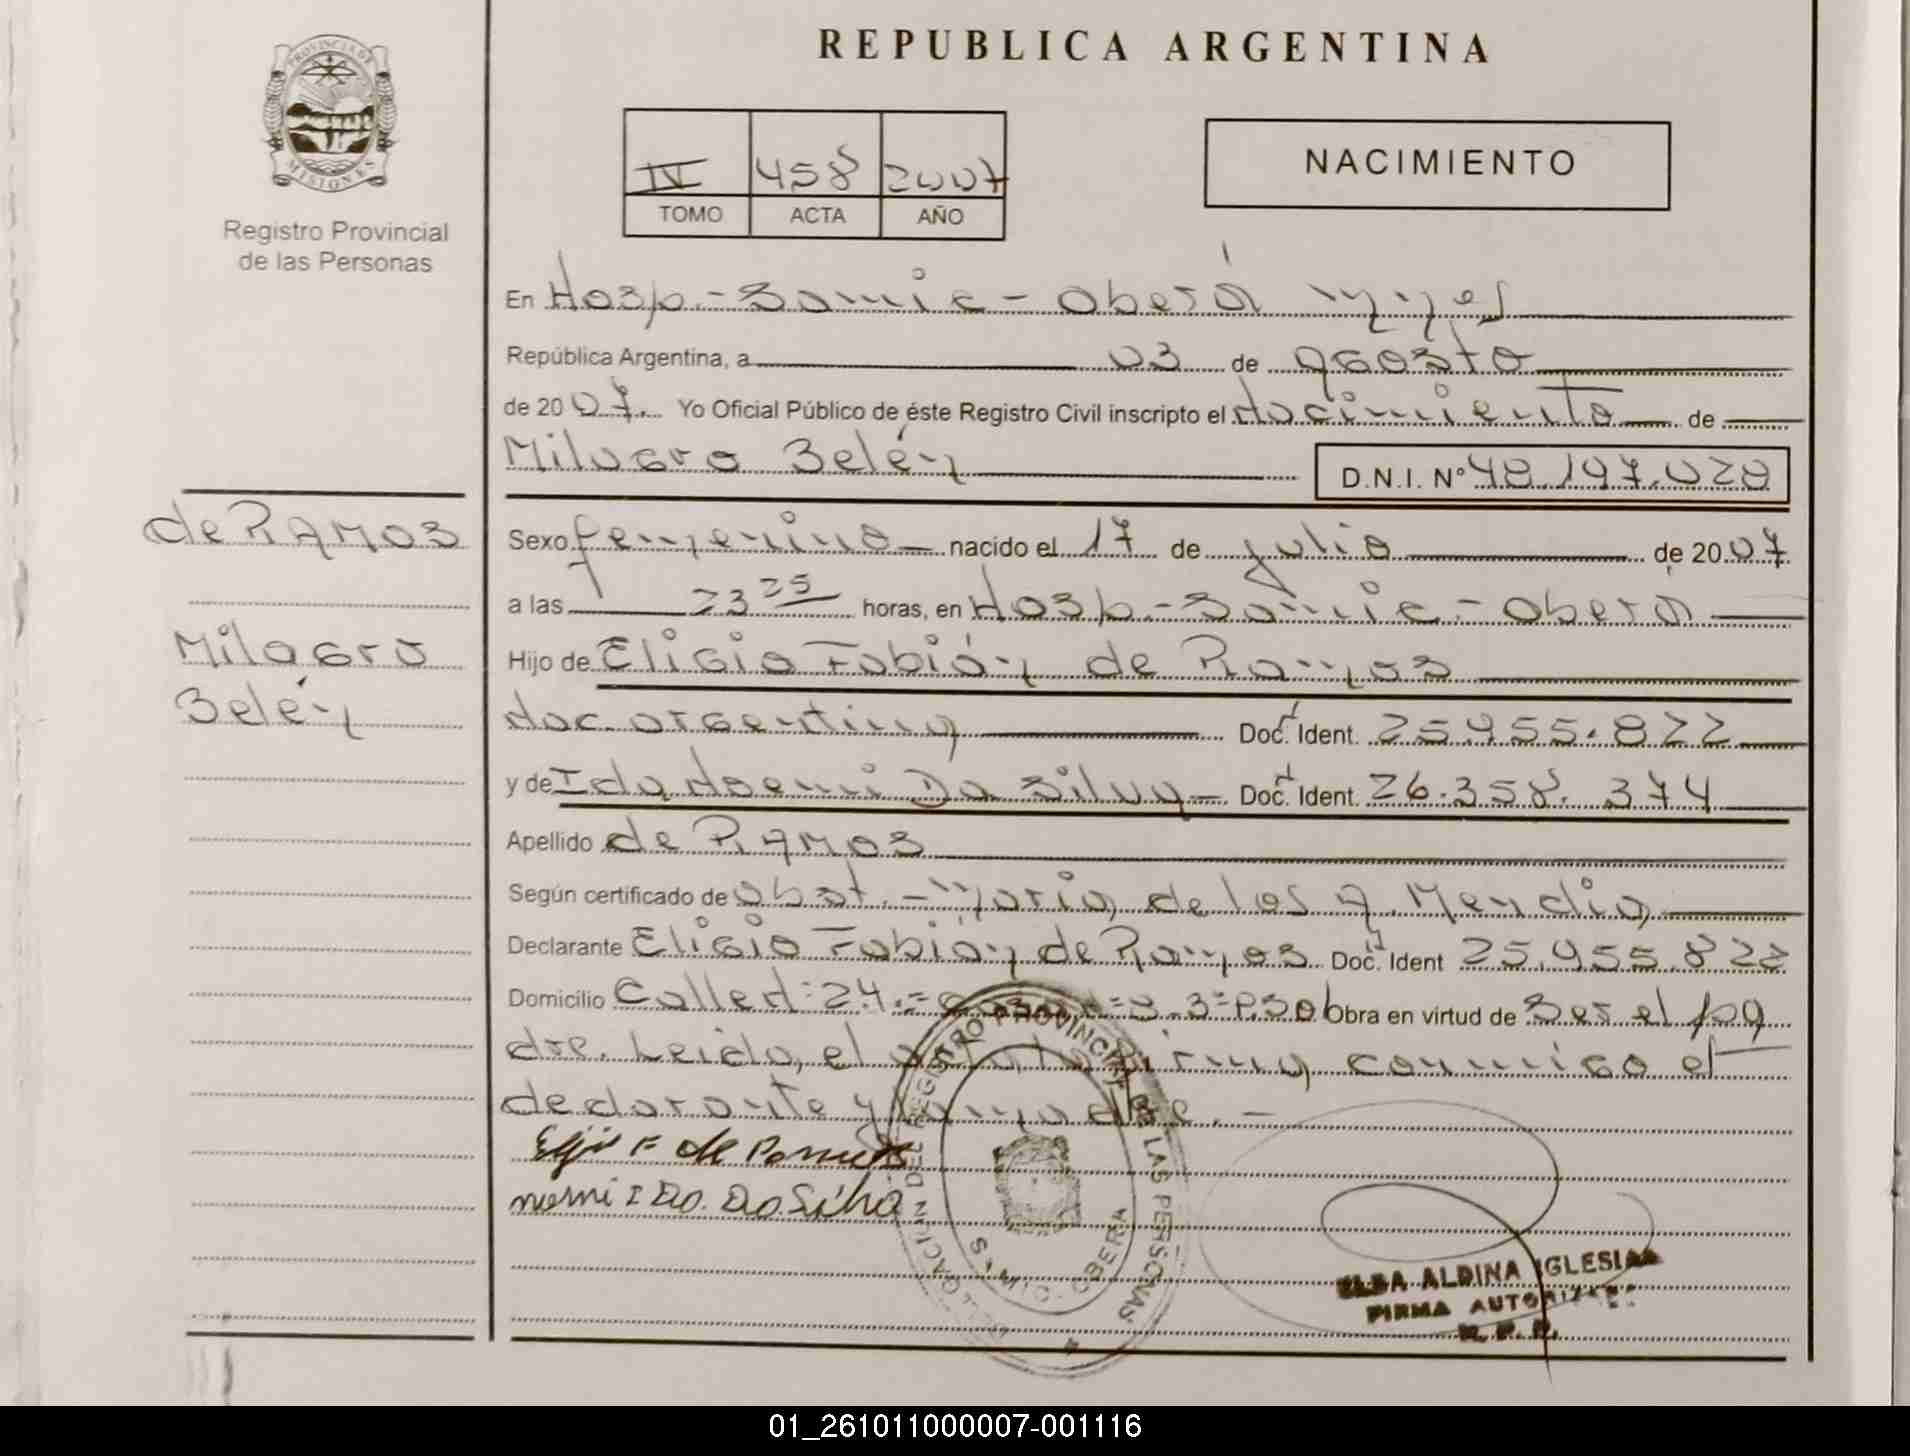 REPUBLICA ARGENTINA
PROVINCIA DE MISIONES
Registro Provincial
de las Personas
IV 458 2007
TOMO ACTA AÑO
NACIMIENTO
En Hosp.-Samic-Oberá Mnes
República Argentina, a 03 de agosto
de 2007. Yo Oficial Público de éste Registro Civil inscripto el nacimiento de
Milagro Belén D.N.I. Nº 48.197.028
de RAMOS
Milagro
Belén
Sexo femenino nacido el 17 de julio de 2007
a las 23 25 horas, en Hosp.-Samic-Oberá
Hijo de Eligio Fabián de Ramos
nac. argentina Doc. Ident. 25.955.822
y de Ida Noemi Da Silva Doc. Ident. 26.358.374
Apellido de RAMOS
Según certificado de Obst.-Maria de los A. Mendia
Declarante Eligio Fabián de Ramos Doc. Ident 25.955.822
Domicilio Calle N: 24.= P.30 Obra en virtud de Ser el pa
dre. Leida el acta firma conmigo el
declarante y la madre.-
Eligio F de Ramos
Noemi I Da Silva
DELEGACION DEL REGISTRO PROVINCIAL DE LAS PERSONAS
SAMIC - OBERA
ELBA ALDINA IGLESIAS
FIRMA AUTORIZADA
R. P. P.
01_261011000007-001116